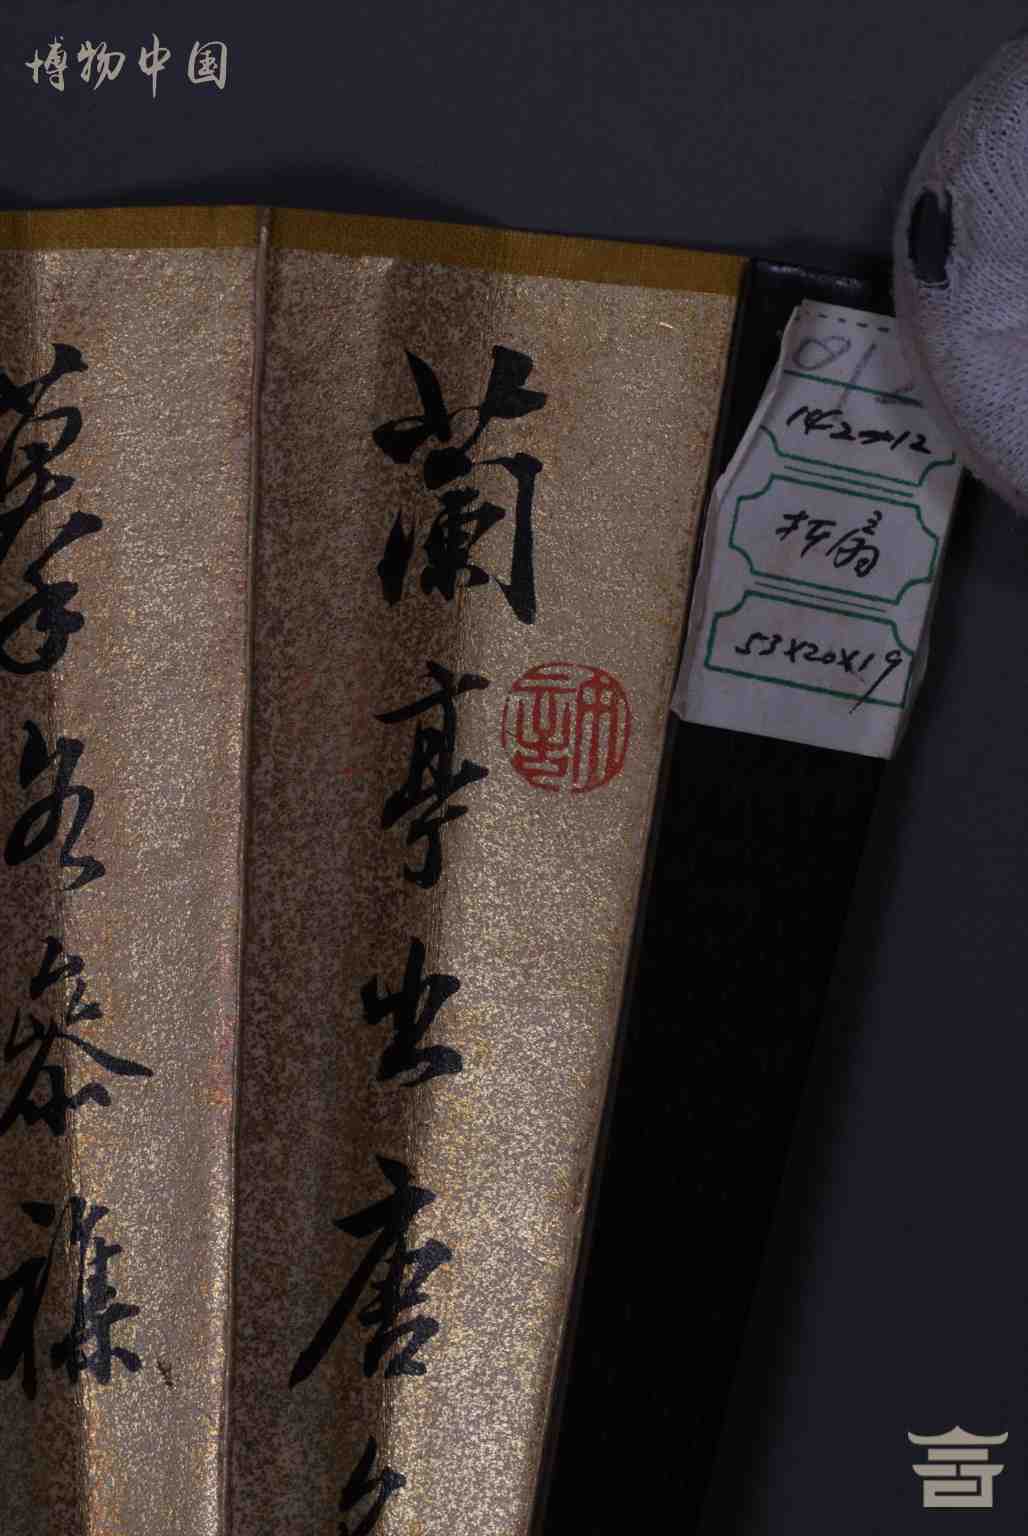 博物中国
蘭亭出唐名
摹各參雜
142-12
折扇
53×20×19